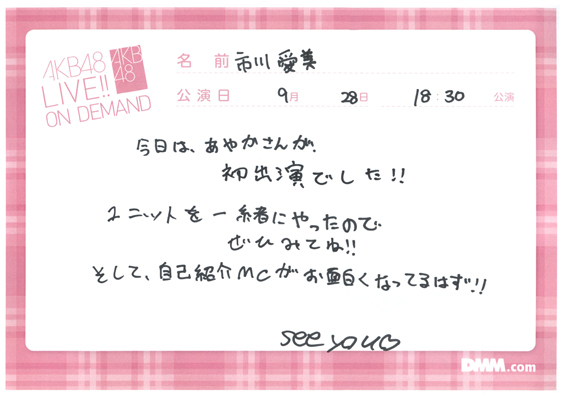 AKB48
LIVE!!
ON DEMAND
AKB
48
名 前 市川愛美
公演日 9月 28日 18:30 公演
今日は、あやかさんが、
初出演でした!!
ユニットを一緒にやったので
ぜひみてね!!
そして、自己紹介MCがお面白くなってるはず!!
see you♡
DMM.com